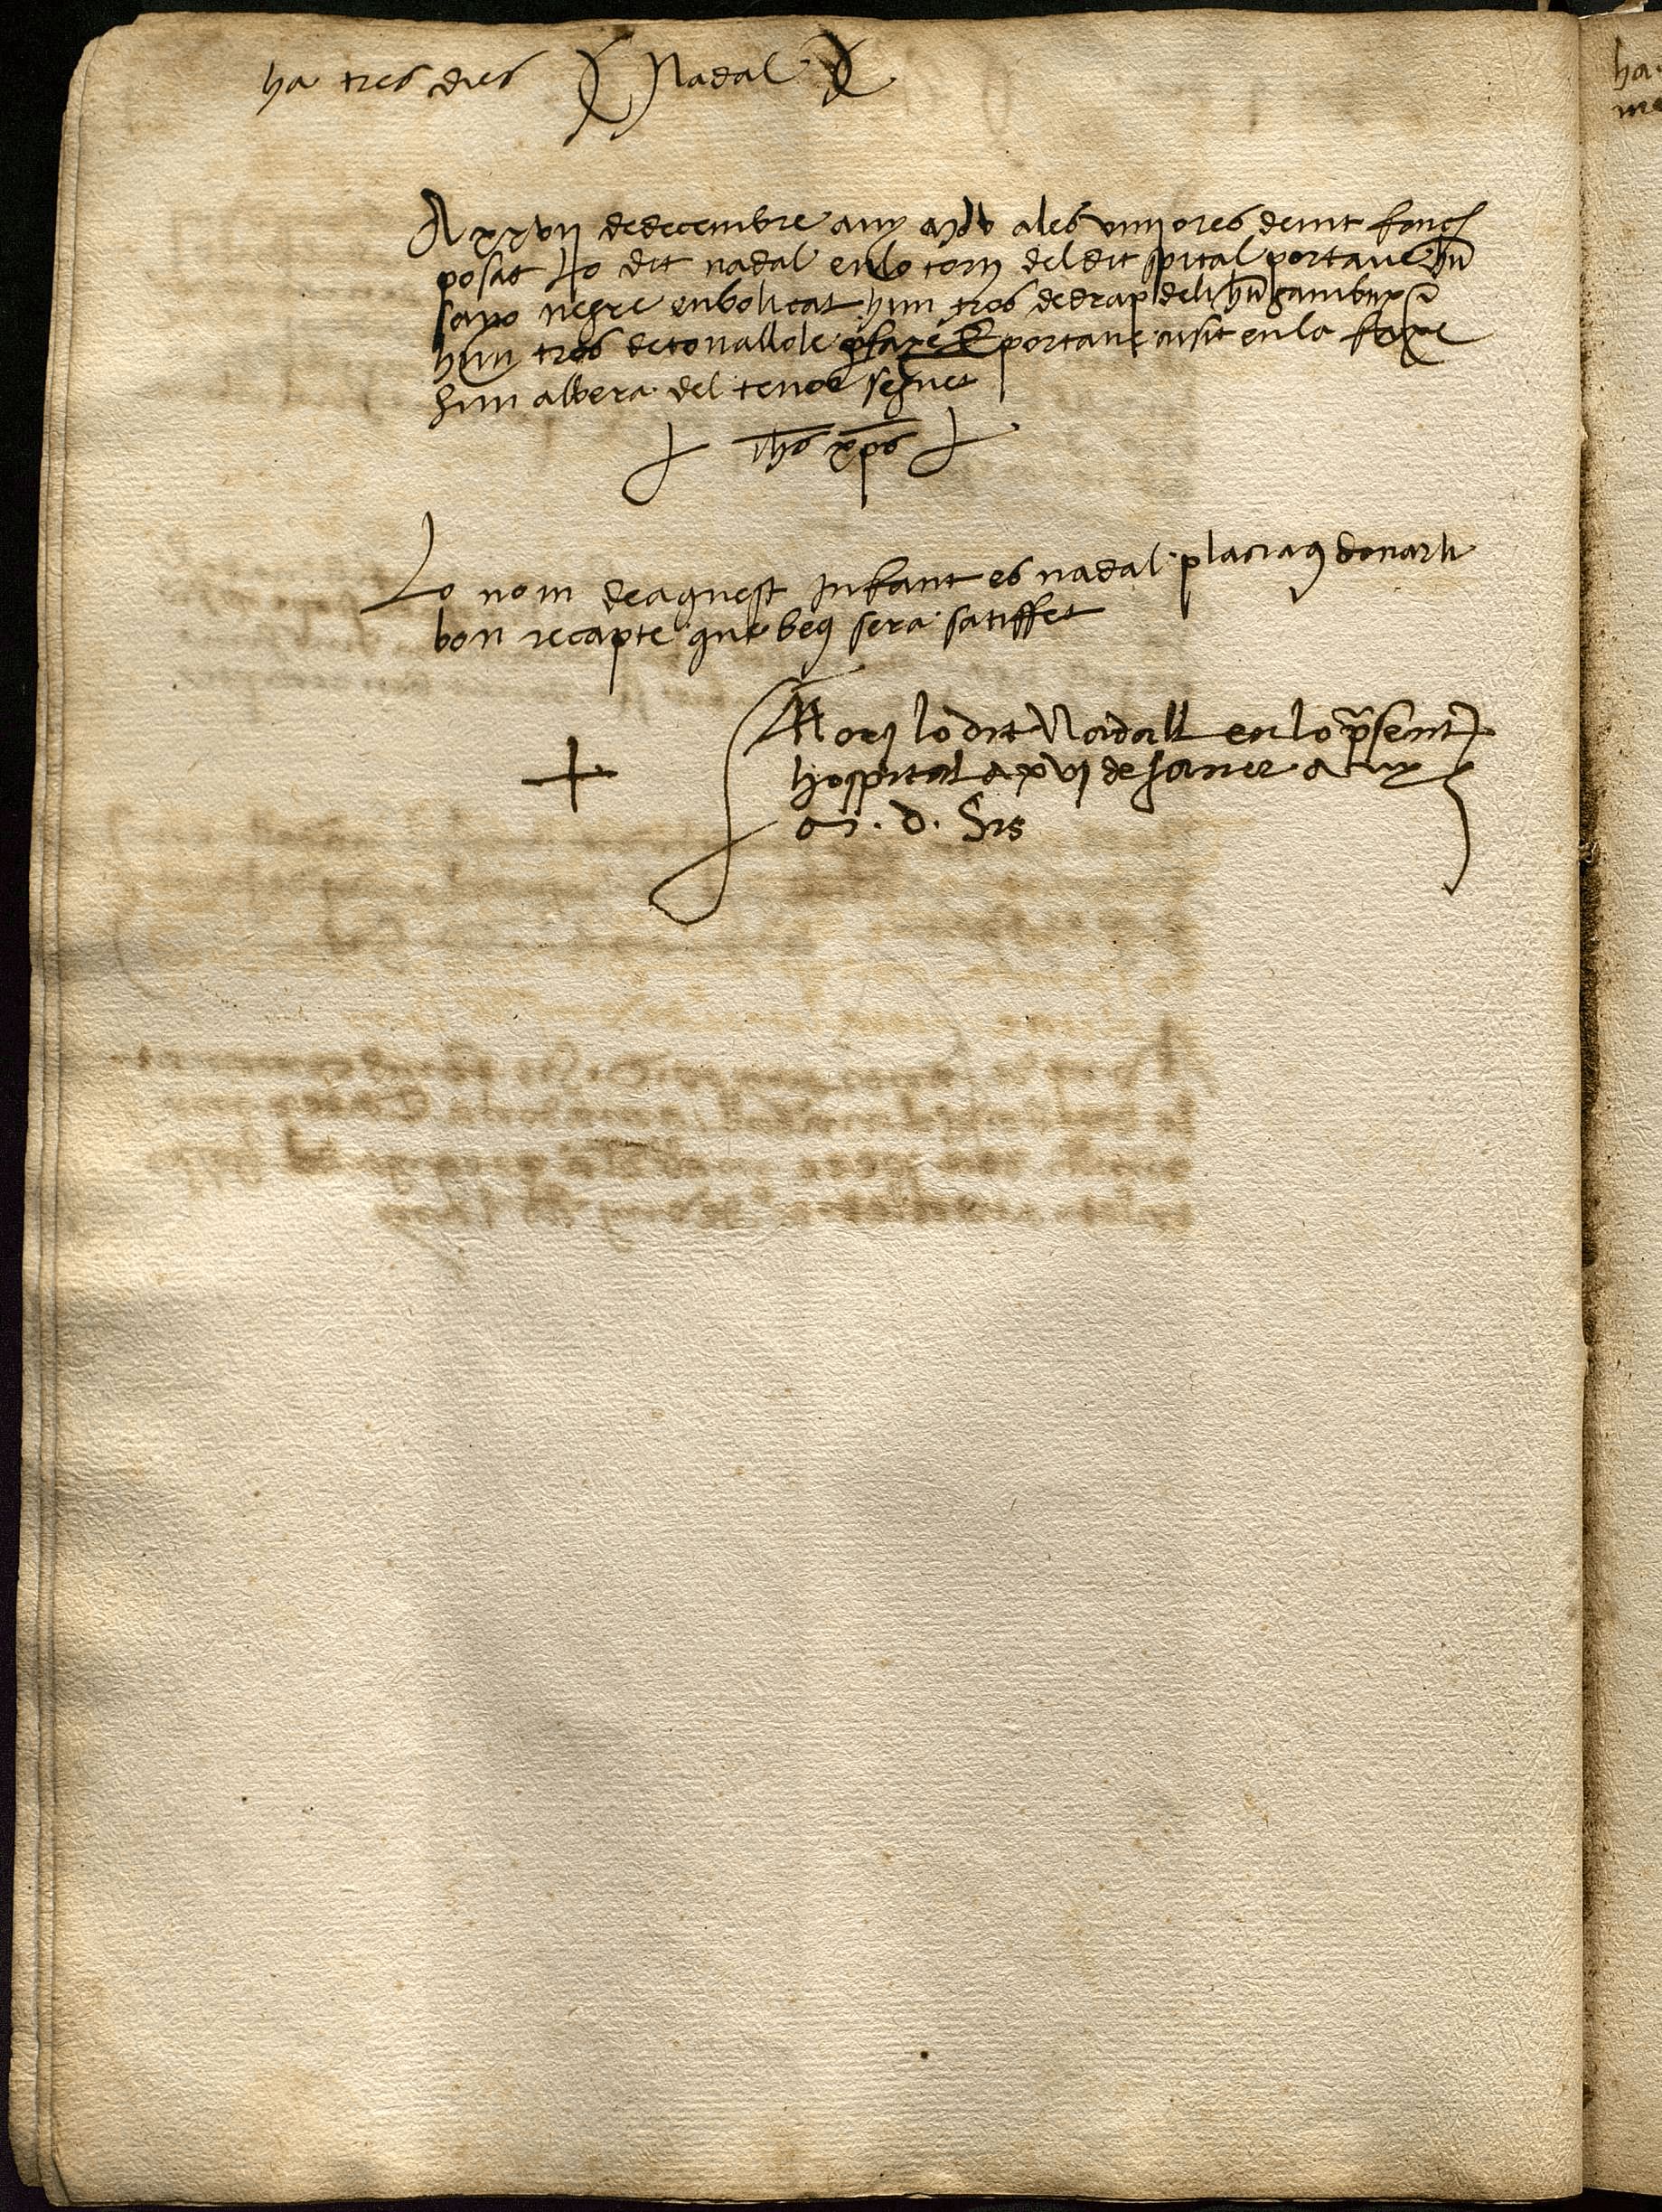 ha tres dies Nadal
A xxvii de decembre any MDV a les viiii ores de nit fonch
posat lo dit nadal en lo torn del dit spital portaue hū
sayo negre enbolicat hun tros de drap de li hū gambux e
hun tros de touallole p faxe E portaue scrit en lo faxe
hun albera del tenor seguet
+ Ihs xps +
Lo nom de aquest Infant es nadal placiaus donarli
bon recapte que beŋ sera satisffet
+ Mori lo dit Nadall en lo p̄sent
hospital a xvi de Janer
m . d . Sis
ha